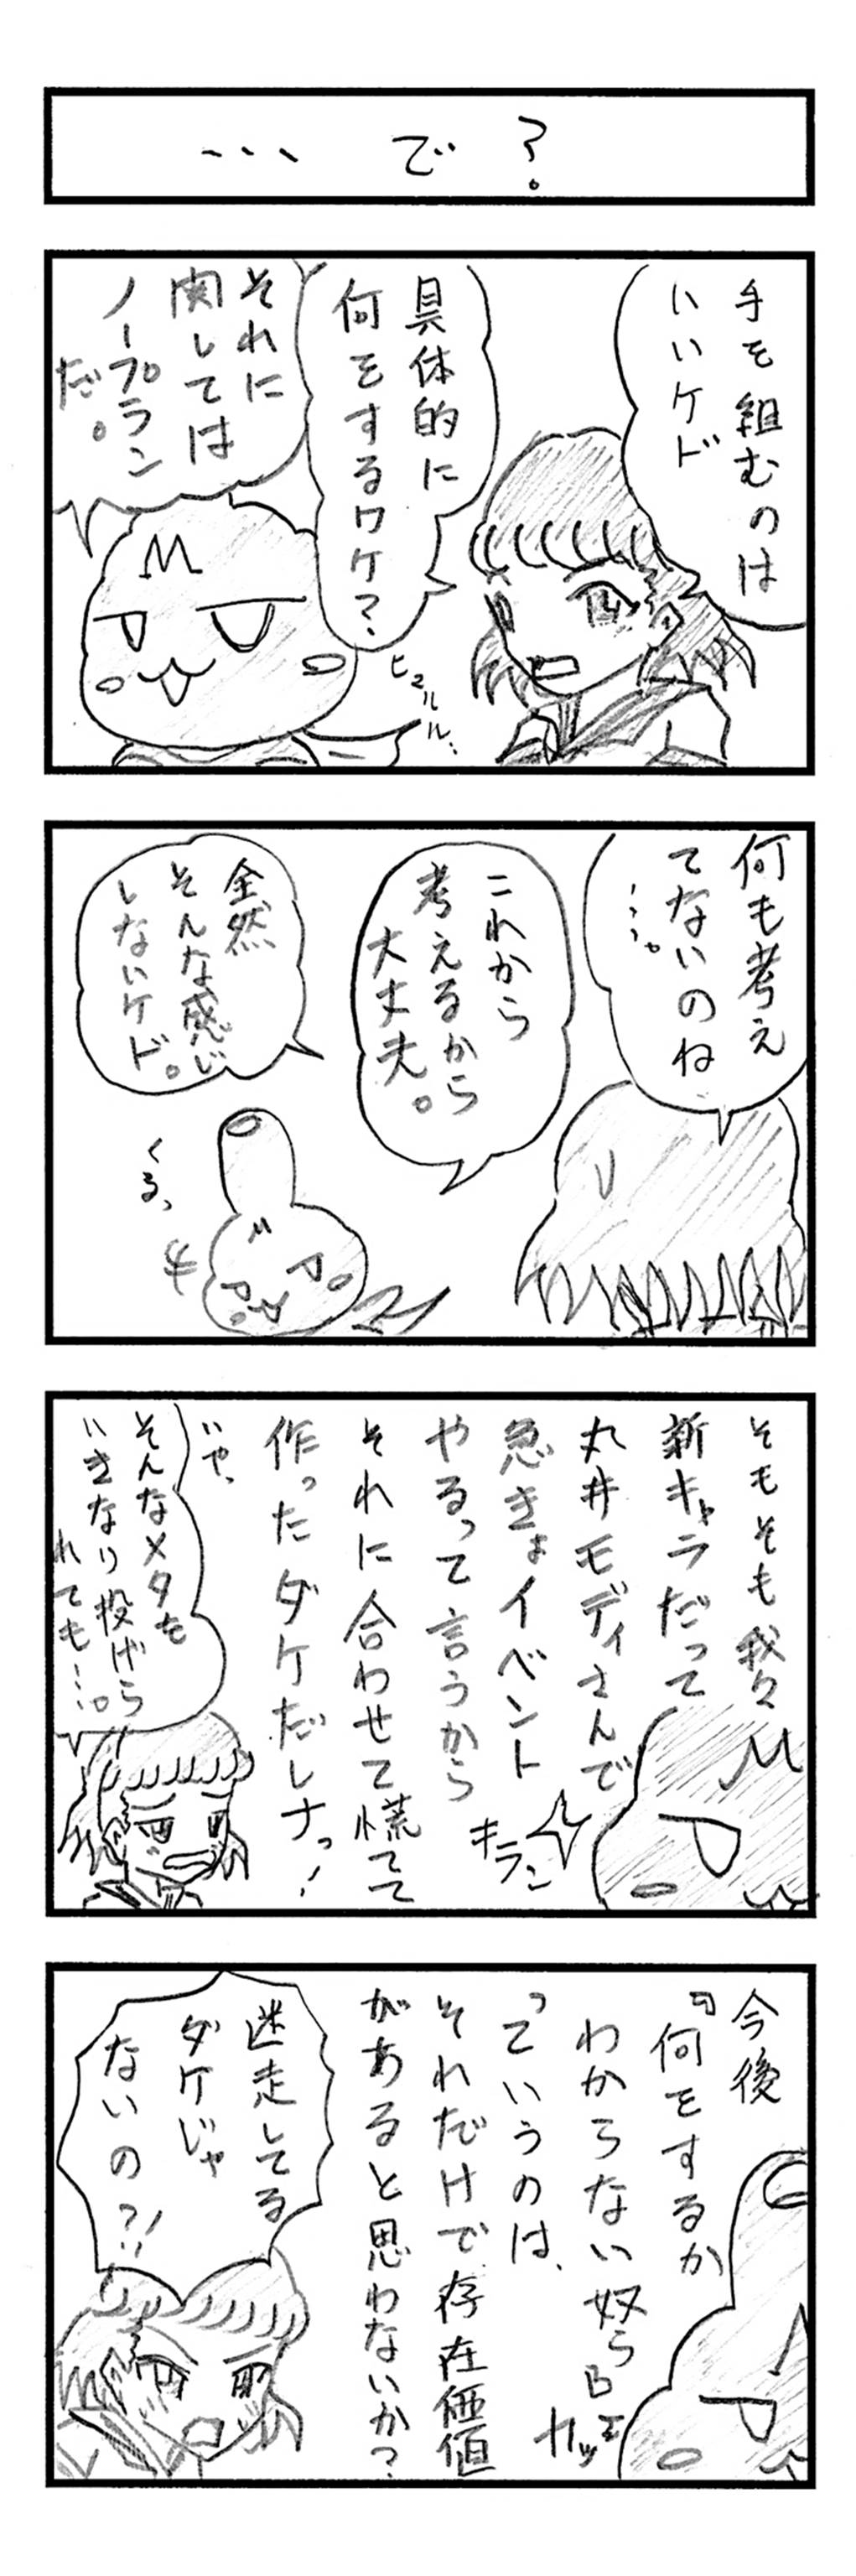 …で？
手を組むのは
いいケド
具体的に
何をするワケ？
それに
関しては
ノープラン
だ。
ヒュルルル…
何も考え
てないのね
…。
これから
考えるから
大丈夫。
全然
そんな感じ
しないケド。
くるっ
そもそも我々
新キャラだって
丸井モディさんで
急きょイベント
やるって言うから
それに合わせて慌てて
作ったダケだしナっ!
キラン
いや、
そんなメタを
いきなり投げら
れても…。
今後
『何をするか
わからない奴ら』
っていうのは、
それだけで存在価値
があると思わないか？
カッ
迷走してる
ダケじゃ
ないの?!